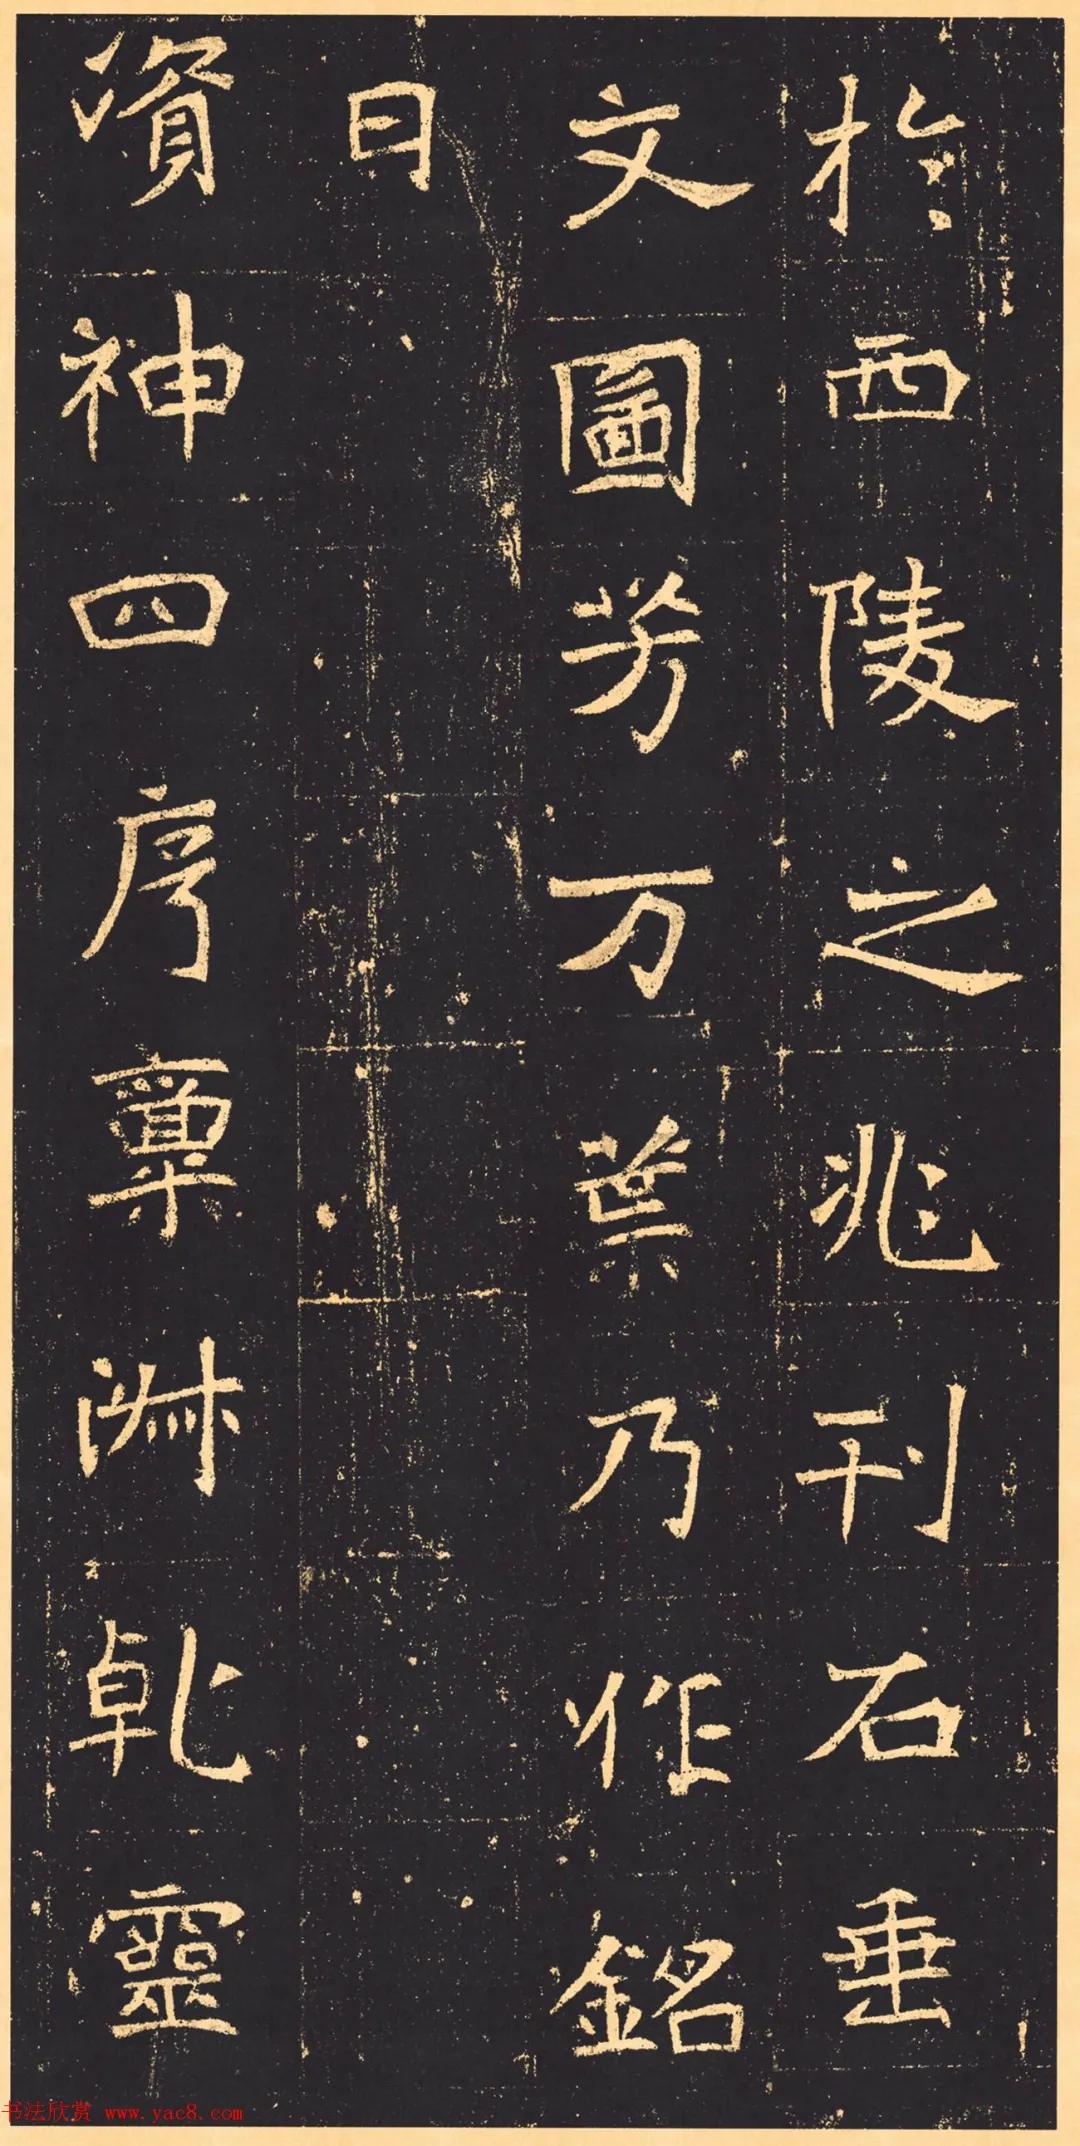 於西陵之兆刊石垂
文圖芳万葉乃作銘
曰
資神四序稟淋乾靈
书法欣赏 www.yac8.com